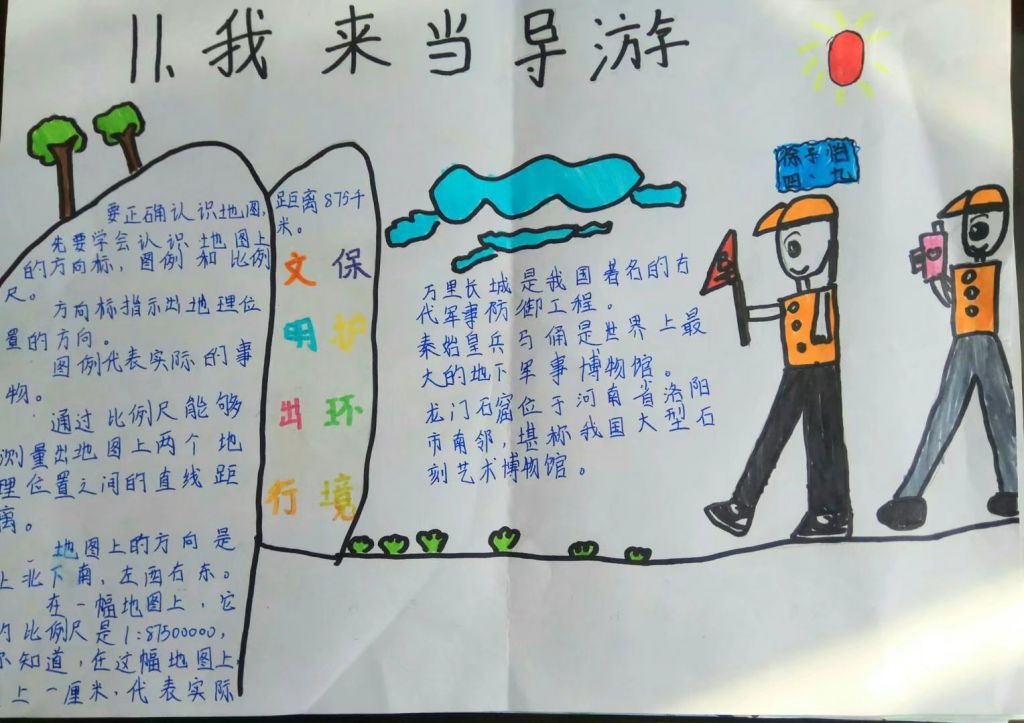 11、我来当导游
徐子怡
四、九
要正确认识地图,
先要学会认识地图上
的方向标,图例和比例
尺。
方向标指示出地理位
置的方向。
图例代表实际的事
物。
通过比例尺能够
测量出地图上两个地
理位置之间的直线距
离。
地图上的方向是
上北下南,左西右东。
在一幅地图上,它
的比例尺是1:87500000,
你知道,在这幅地图上
上一厘米,代表实际
距离875千
米。
文明出行
保护环境
万里长城是我国著名的古
代军事防御工程。
秦始皇兵马俑是世界上最
大的地下军事博物馆。
龙门石窟位于河南省洛阳
市南郊,堪称我国大型石
刻艺术博物馆。